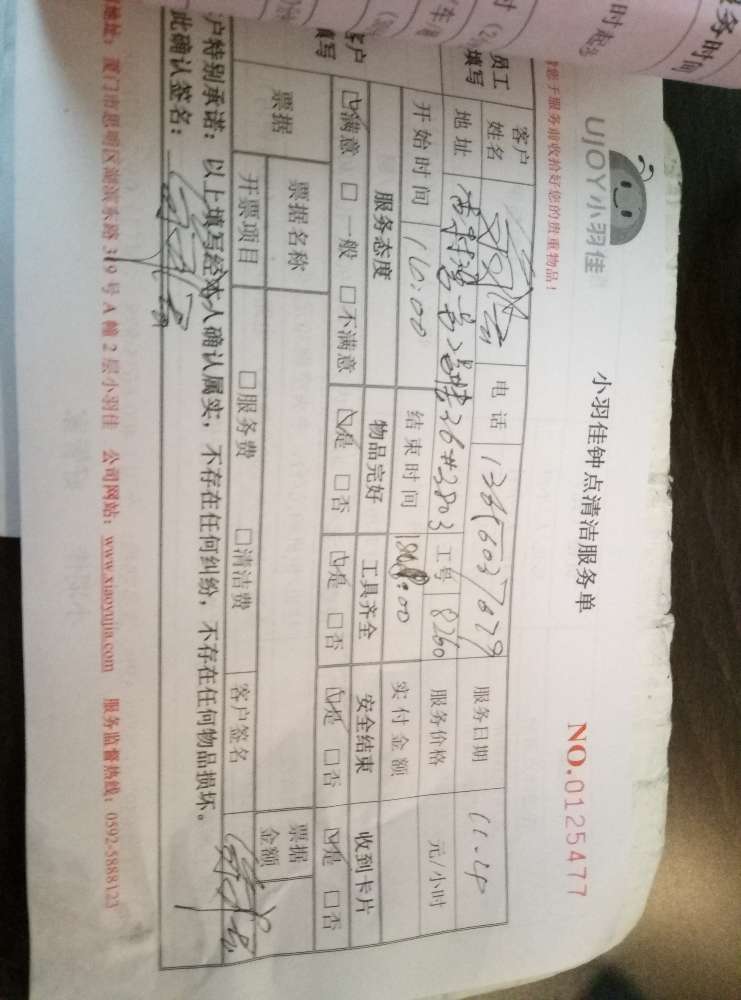 UJOY小羽佳
小羽佳钟点清洁服务单
NO.0125477
于服务前收拾好您的贵重物品！
员工填写
客户姓名
电 话
服务日期 11.24
地址
26#3803
工号 8260
服务价格 元/小时
开始时间 16:00
结束时间 18:00
实付金额
客户填写
服务态度 物品完好 工具齐全 安全结束 收到卡片
☑满意 □一般 □不满意 ☑是 □否 ☑是 □否 ☑是 □否 ☑是 □否
票据
票据名称
票据金额
开票项目 □服务费 □清洁费 客户签名
户特别承诺：以上填写经本人确认属实，不存在任何纠纷，不存在任何物品损坏。
此确认签名：
地址：厦门市思明区湖滨东路319号A幢2层小羽佳 公司网站：www.xiaoyujia.com 服务监督热线：0592-5888123
服务时间